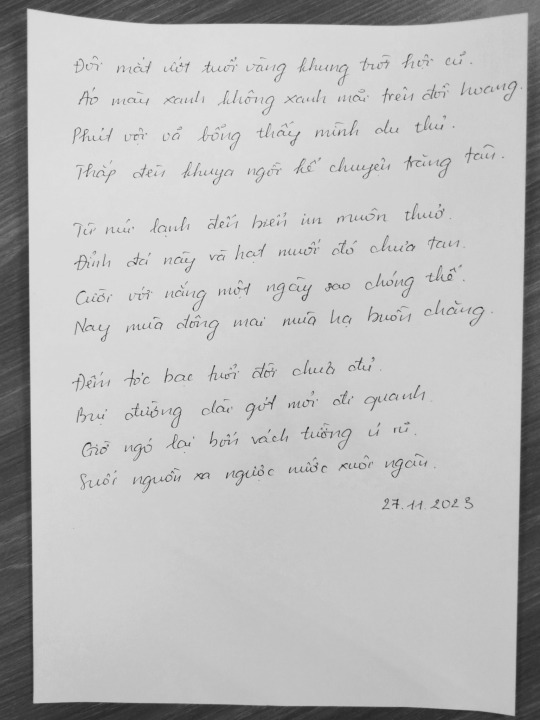 Đôi mắt ướt tuổi vàng khung trời hội cũ.
Áo màu xanh không xanh mãi trên đồi hoang.
Phút vội vã bỗng thấy mình du thủ.
Thắp đèn khuya ngồi kể chuyện trăng tàn.
Từ núi lạnh đến biển im muôn thuở.
Đỉnh đá này và hạt muối đó chưa tan.
Cười với nắng một ngày sao chóng thế.
Nay mùa đông mai mùa hạ buồn chăng.
Đếm tóc bạc tuổi đời chưa đủ.
Bụi đường dài gót mỏi đi quanh.
Giờ ngó lại bốn vách tường ủ rũ.
Suối nguồn xa ngược nước xuôi ngàn.
27.11.2023